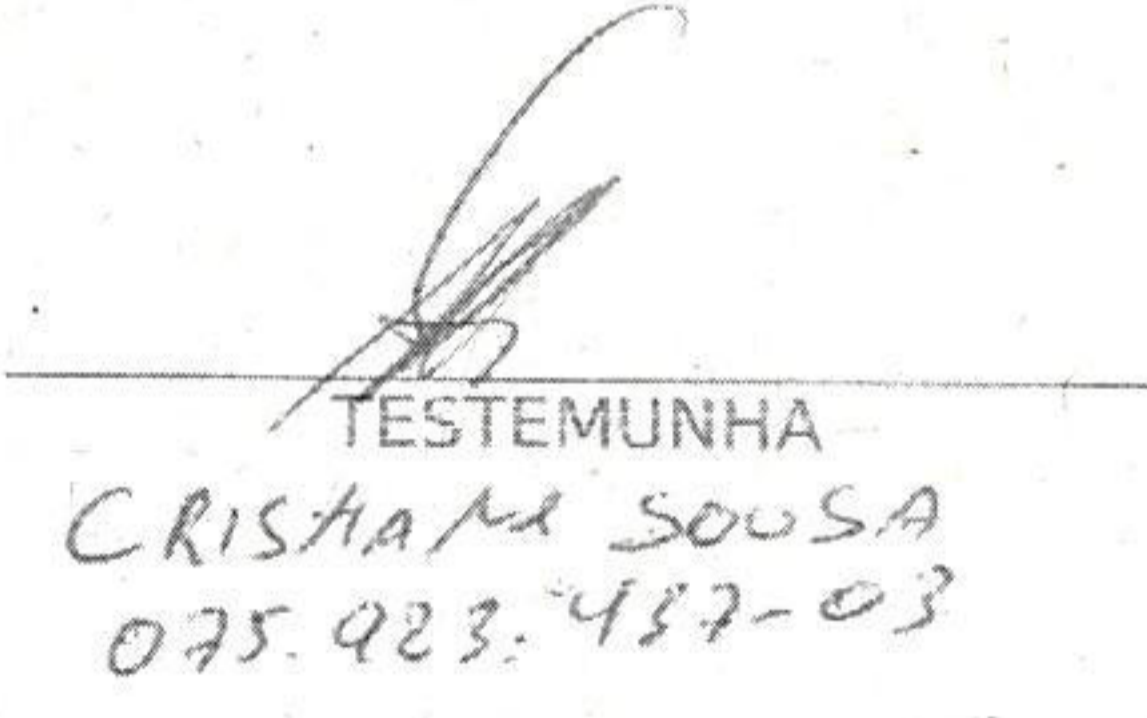 TESTEMUNHA
CRISTIANE SOUSA
075.923.437-03